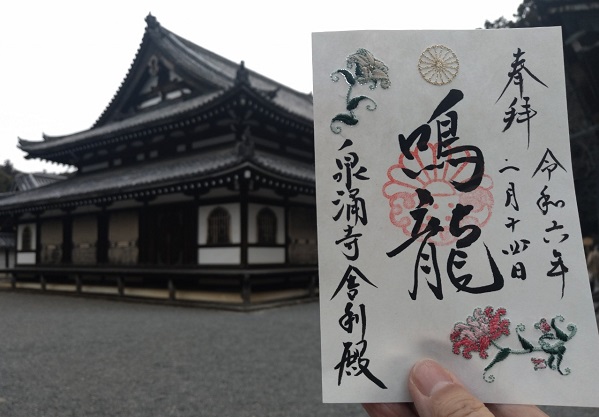 奉拝
令和六年
二月十四日
鳴龍
泉涌寺舎利殿